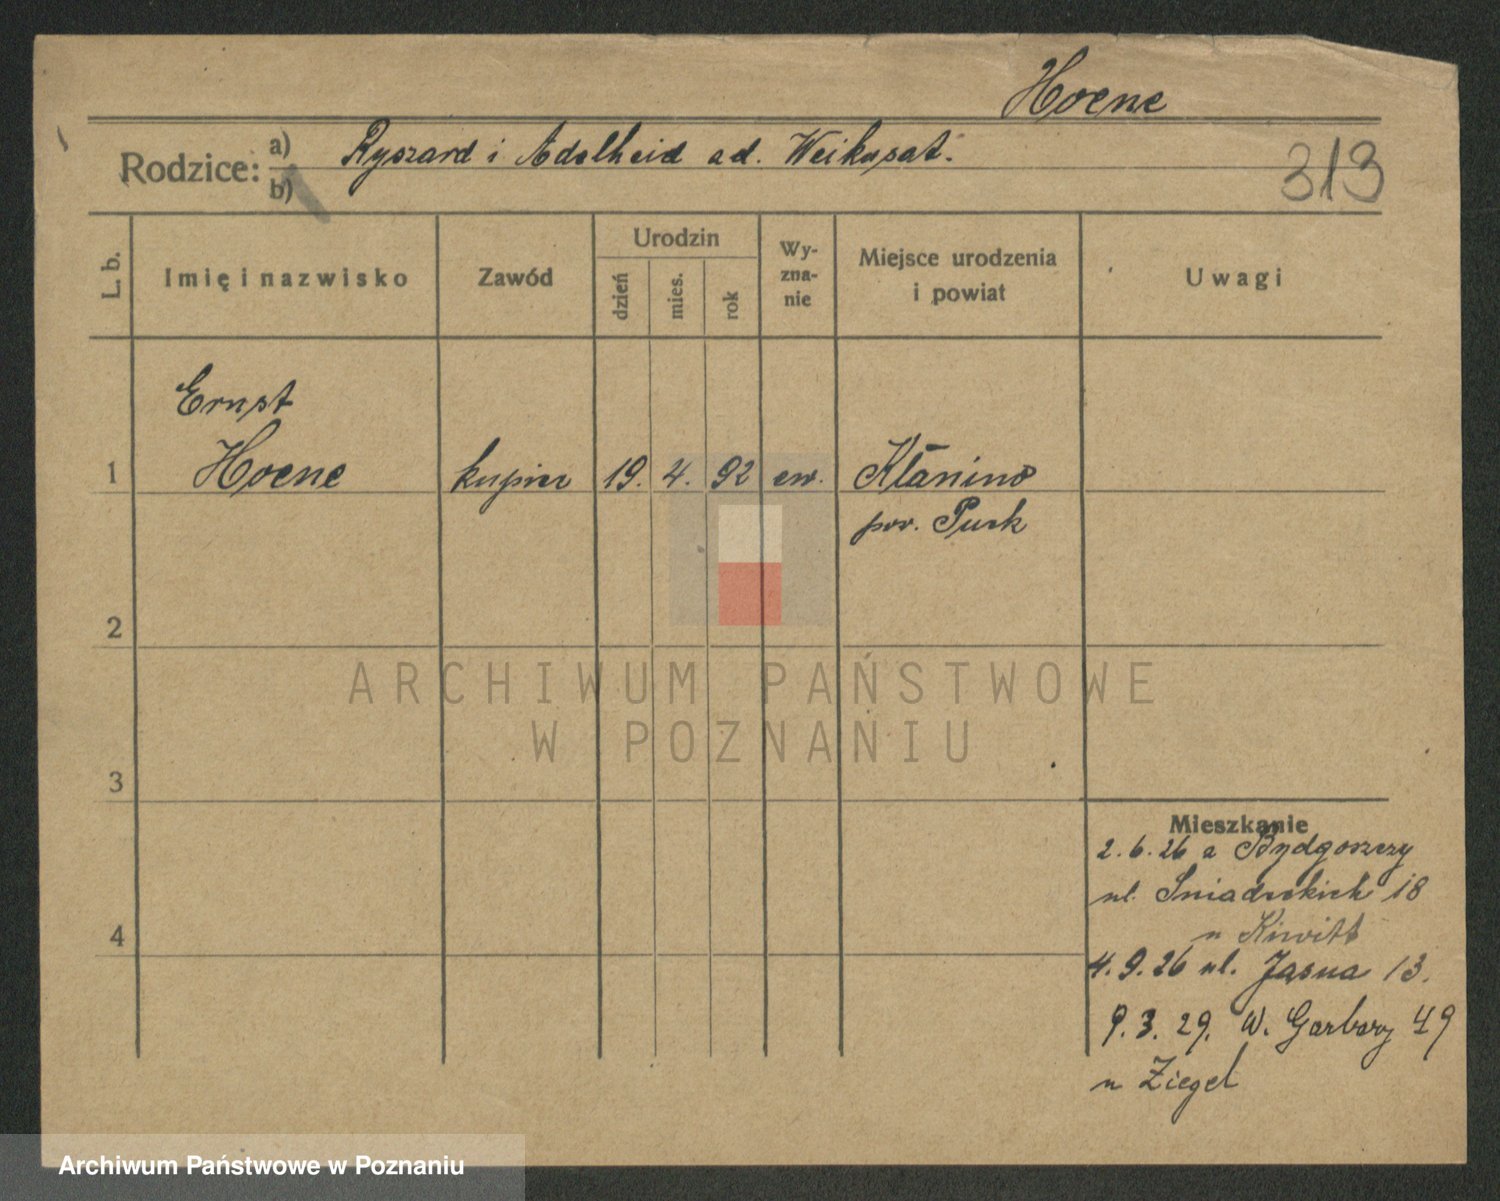 Hoene
Rodzice: a) Ryszard i Adelheid
b)
313
L. b.
Imię i nazwisko
Zawód
Urodzin
dzień
mies.
rok
Wy-
zna-
nie
Miejsce urodzenia
i powiat
Uwagi
Ernst
1 Hoene kupiec 19. 4. 92 ew. Kłanino
pow. Puck
2
3
4
ARCHIWUM PAŃSTWOWE
W POZNANIU
Mieszkanie
2.6.26 z Bydgoszczy
ul. Śniadeckich 18
u Kiwitt
4.9.26 ul. Jasna 13.
9.3.29. W. Garbary 49
u Ziegel
Archiwum Państwowe w Poznaniu